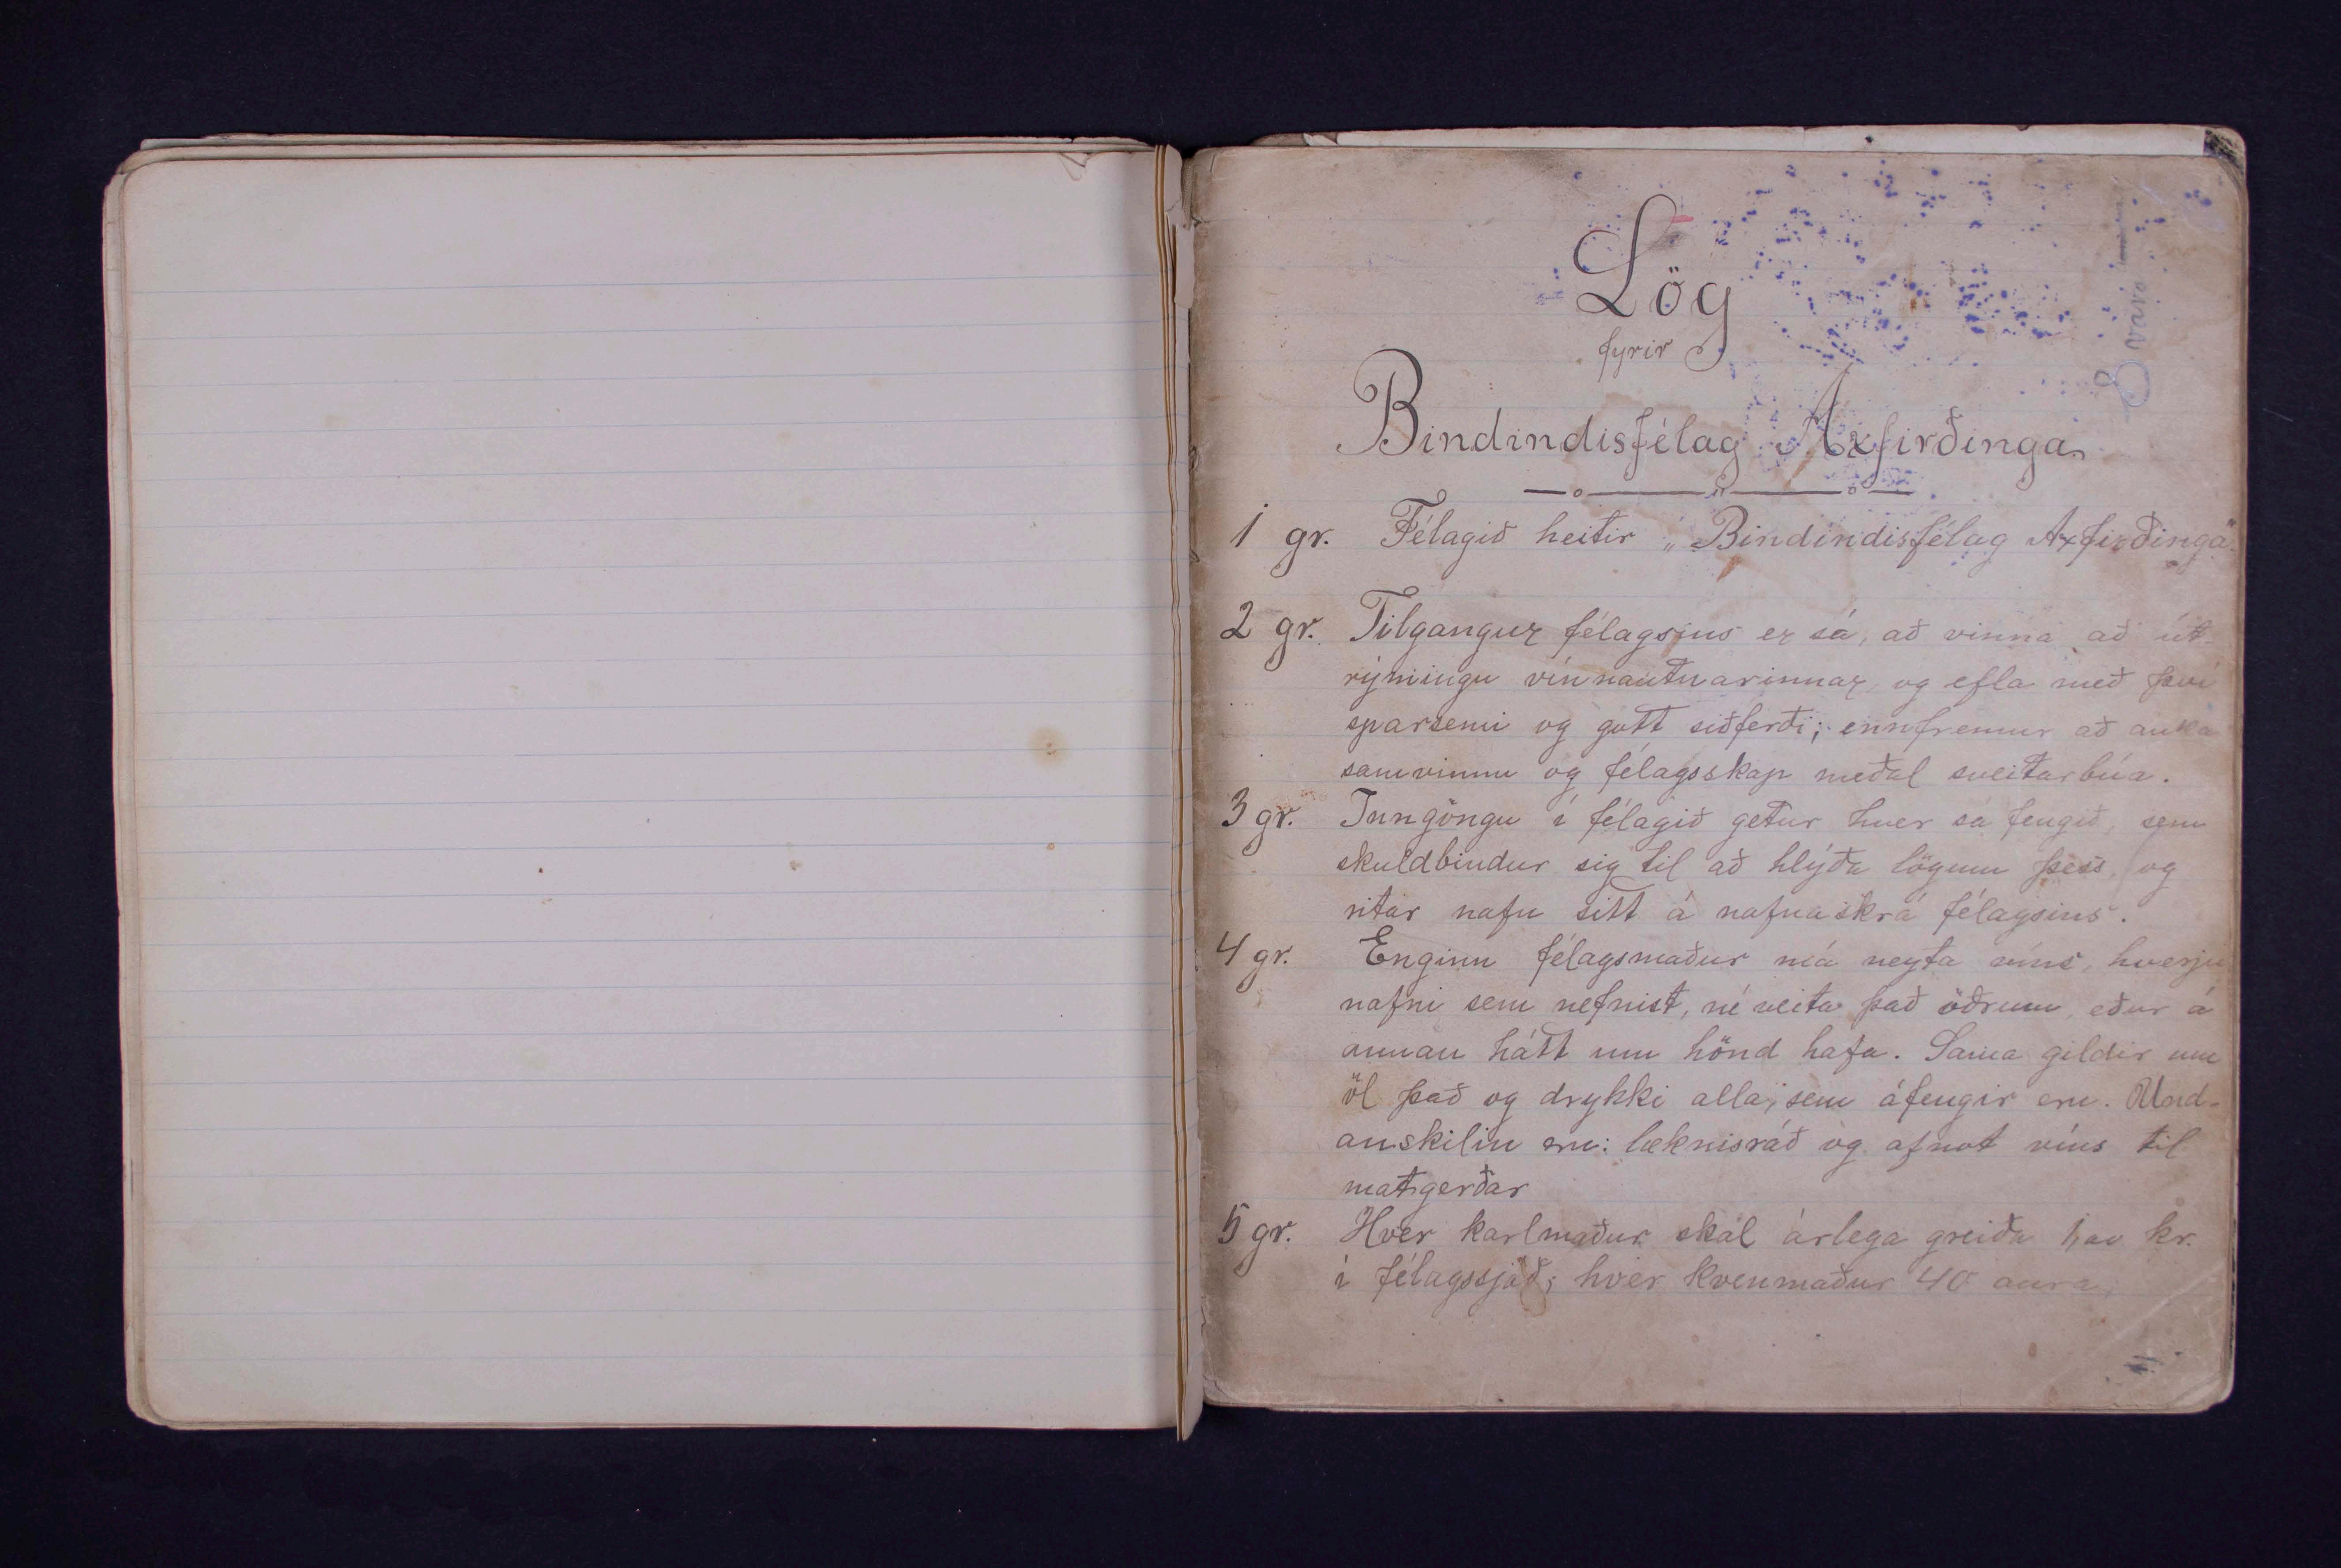 Lög
fyrir
Bindindisfélag Axfirðinga.
1 gr. Félagið heitir „Bindindisfélag Axfirðinga".
2 gr. Tilgangur félagsins er sá, að vinna að út-
rýmingu vínnautnarinnar, og efla með því
sparsemi og gott siðferði; ennfremur að auka
samvinnu og félagsskap meðal sveitarbúa.
3 gr. Inngöngu í félagið getur hver sa fengið, sem
skuldbindur sig til að hlýða lögum þess, og
ritar nafn sitt á nafnaskrá félagsins.
4 gr. Enginn félagsmaður má neyta víns, hverju
nafni sem nefnist, né veita það öðrum, eður á
annan hátt um hönd hafa. Sama gildir um
öl það og drykki alla, sem áfengir eru. Und-
anskilin eru: læknisráð og afnot víns til
matgerðar
5 gr. Hver karlmaður skal árlega greiða kr.
í félagssjóð; hver kvenmaður 40 aura.